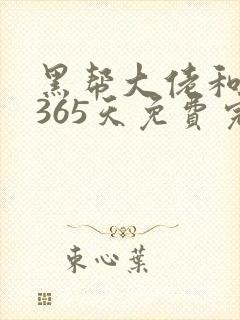 黑帮大佬和
365天免費完
束心葉